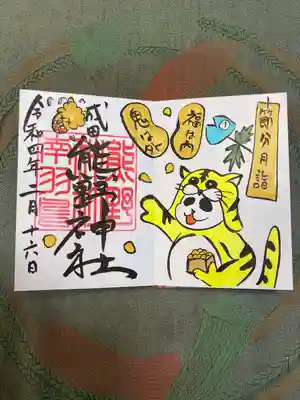 節分月詣
福は内
鬼は外
成田
熊野神社
令和四年二月十六日